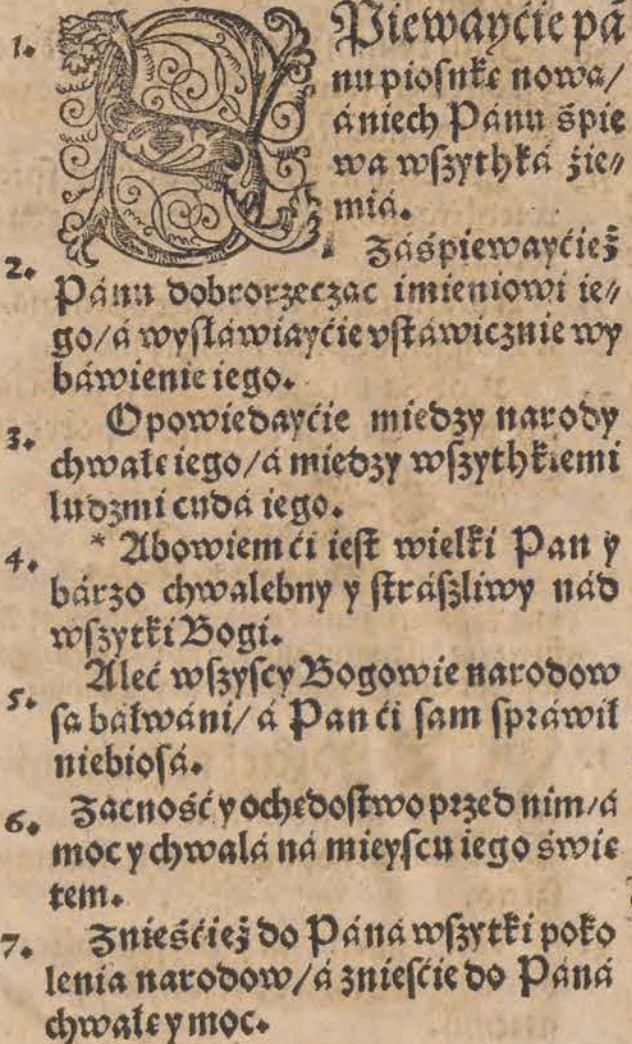 1. SPiewayćie pá
nu piosnkę nową/
á niech Pánu śpie
wa wszythká źie⸗
miá.
2. Záśpiewayćież
Pánu dobrorzecząc imieniowi ie⸗
go/á wysławiayćie vstáwicznie wy
báwienie iego.
3. Opowiedayćie miedzy narody
chwałę iego/á miedzy wszythkiemi
ludzmi cudá iego.
4. * Abowiem ći iest wielki Pan y
bárzo chwalebny y strászliwy nád
wszytki Bogi.
5. Aleć wszyscy Bogowie narodow
są báłwáni/á Pan ći sam spráwił
niebiosá.
6. Zacność y ochędostwo przed nim/á
moc y chwałá ná mieyscu iego świę
tem.
7. Znieśćież do Páná wszytki poko
lenia narodow/á znieśćie do Páná
chwałę y moc.